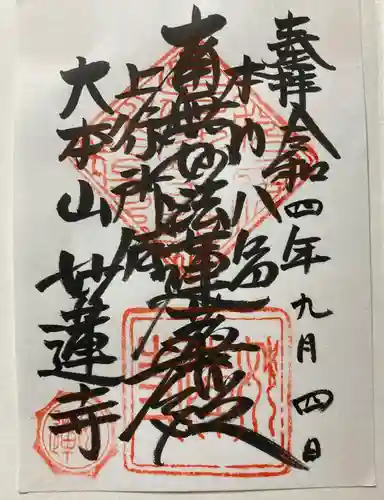 奉拝 令和四年九月四日
本門八品
南無妙法蓮華經
上行所傳
大本山
妙蓮寺